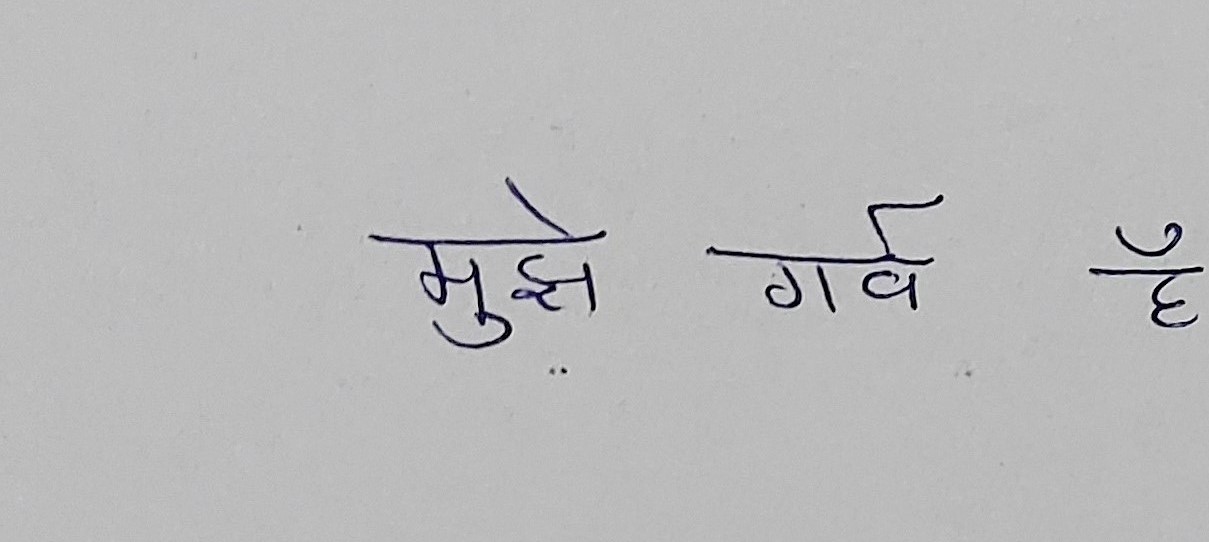 मुझे गर्व